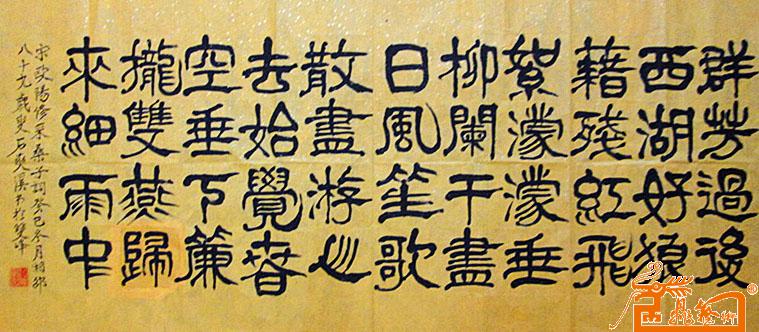 群芳過後
西湖好狼
藉殘紅飛
絮濛濛垂
柳闌干盡
日風笙歌
散盡游人
去始覺春
空垂下簾
櫳雙燕歸
來細雨中
宋歐陽修采桑子詞癸巳冬月
八十九歲叟石